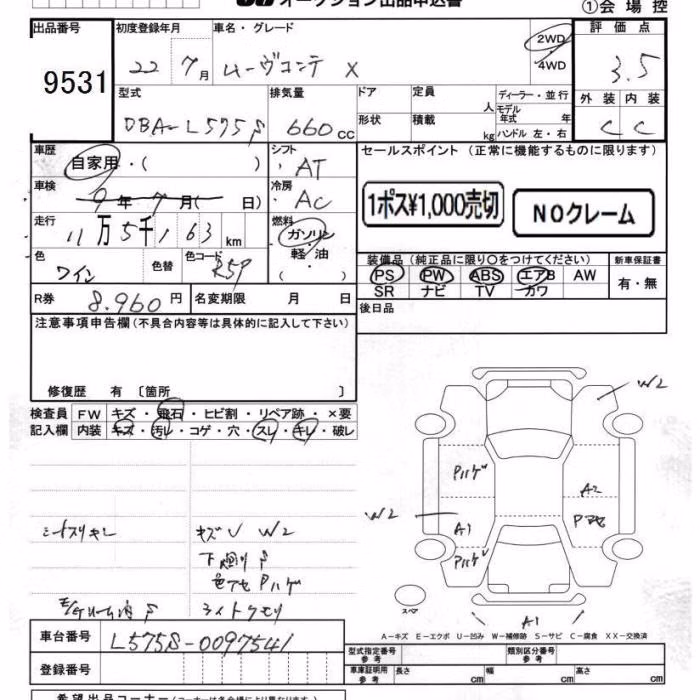 オークション出品申込書 ①会場控
出品番号 初度登録年月 車名・グレード 評価点
9531 22年7月 ムーヴコンテ X 2WD 4WD 3.5
型式 排気量 ドア 定員 ディーラー・並行 外装 内装
DBA-L575S 660cc 形状 積載 人 kg モデル年式 年 ハンドル 左・右 C C
車歴 自家用・( ) シフト AT セールスポイント (正常に機能するものに限ります)
車検 9年7月( 日) 冷房 AC 1ポス¥1,000売切 NOクレーム
走行 11万5千163km 燃料 ガソリン 軽油 ・( )
色 ワイン 色替 色コード R59
装備品(純正品に限り○をつけてください) 新車保証書
PS PW ABS エアB AW 有・無
SR ナビ TV カワ
R券 8.960円 名変期限 月 日 後日品
注意事項申告欄(不具合内容等は具体的に記入して下さい)
修復歴 有 〔箇所 〕
検査員 FW キズ・飛石・ヒビ割・リペア跡・×要
記入欄 内装 キズ・汚レ・コゲ・穴・スレ・キレ・破レ
W2
Pハゲ
A2
W2 A1 Pアセ
Pハゲ
シートスリキレ キズU W2
下廻りS
色アセPハゲ
S ライトクモリ
スペア
A1
A-キズ E-エクボ U-凹み W-補修跡 S-サビ C-腐食 XX-交換済
車台番号 L575S-0097541
登録番号
型式指定番号 参考 類別区分番号 参考
車庫証明用 参考 長さ cm 幅 cm 高さ cm
希望出品コーナー